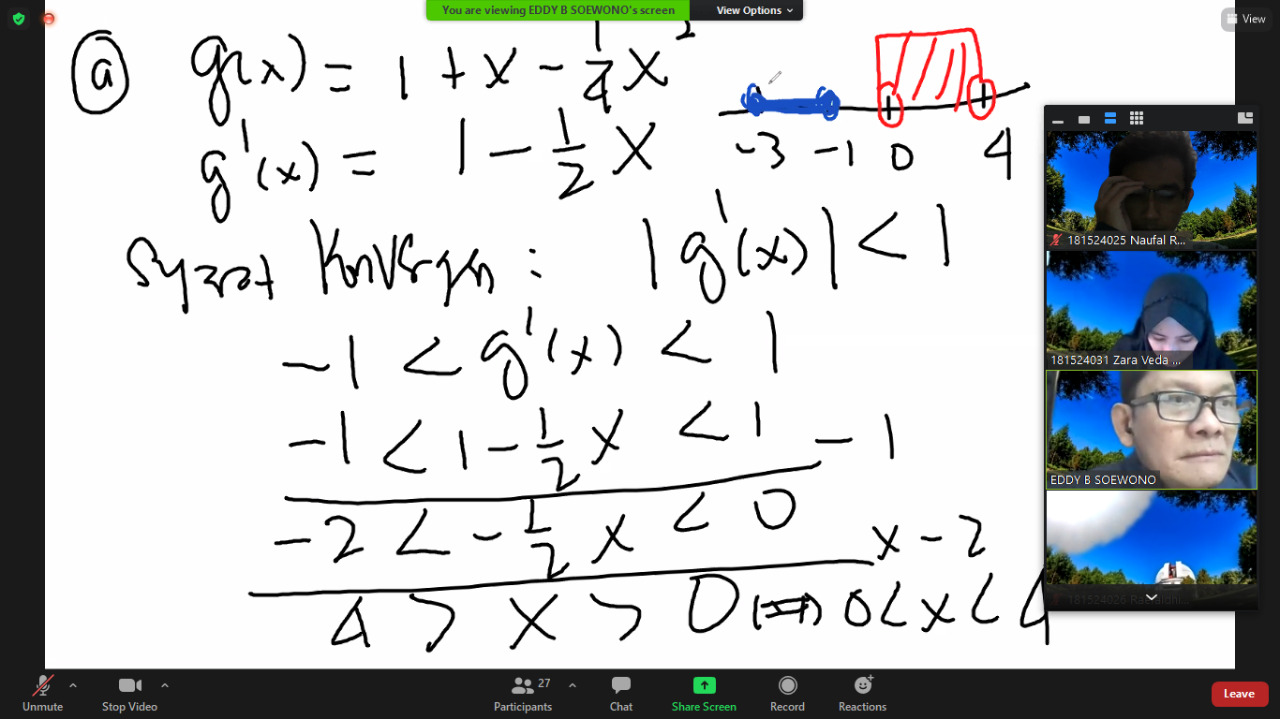 You are viewing EDDY B SOEWONO's screen
View Options
View
a
g(x) = 1 + x - 1/4 x²
g'(x) = 1 - 1/2 x
-3 -1 0 4
Syarat Konvergen : |g'(x)| < 1
-1 < g'(x) < 1
-1 < 1 - 1/2 x < 1 - 1
-2 < - 1/2 x < 0 x - 2
4 > x > 0 ⟺ 0 < x < 4
181524025 Naufal R...
181524031 Zara Veda ...
EDDY B SOEWONO
Unmute
Stop Video
27
Participants
Chat
Share Screen
Record
Reactions
Leave